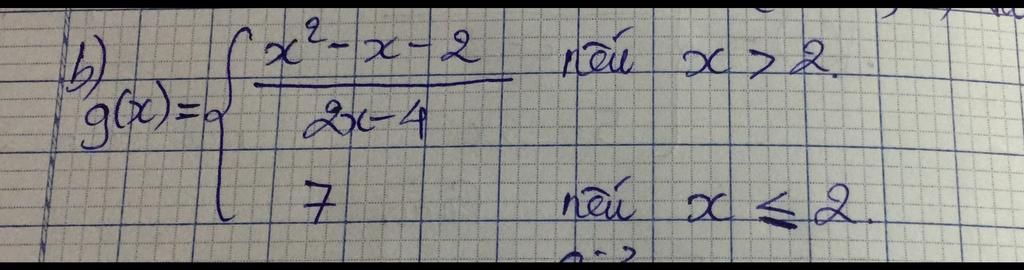 b)
g(x) = { (x² - x - 2) / (2x - 4) nếu x > 2.
7 nếu x ≤ 2.